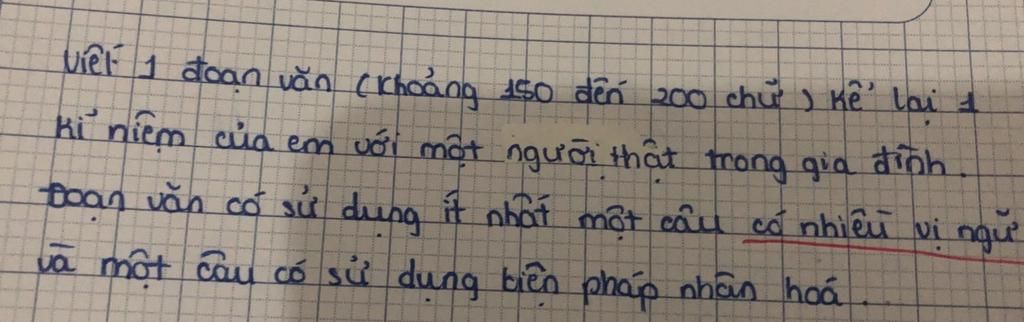 Viết 1 đoạn văn (khoảng 150 đến 200 chữ) kể lại 1
kỉ niệm của em với một người thật trong gia đình.
Đoạn văn có sử dụng ít nhất một câu có nhiều vị ngữ
và một câu có sử dụng biện pháp nhân hoá.